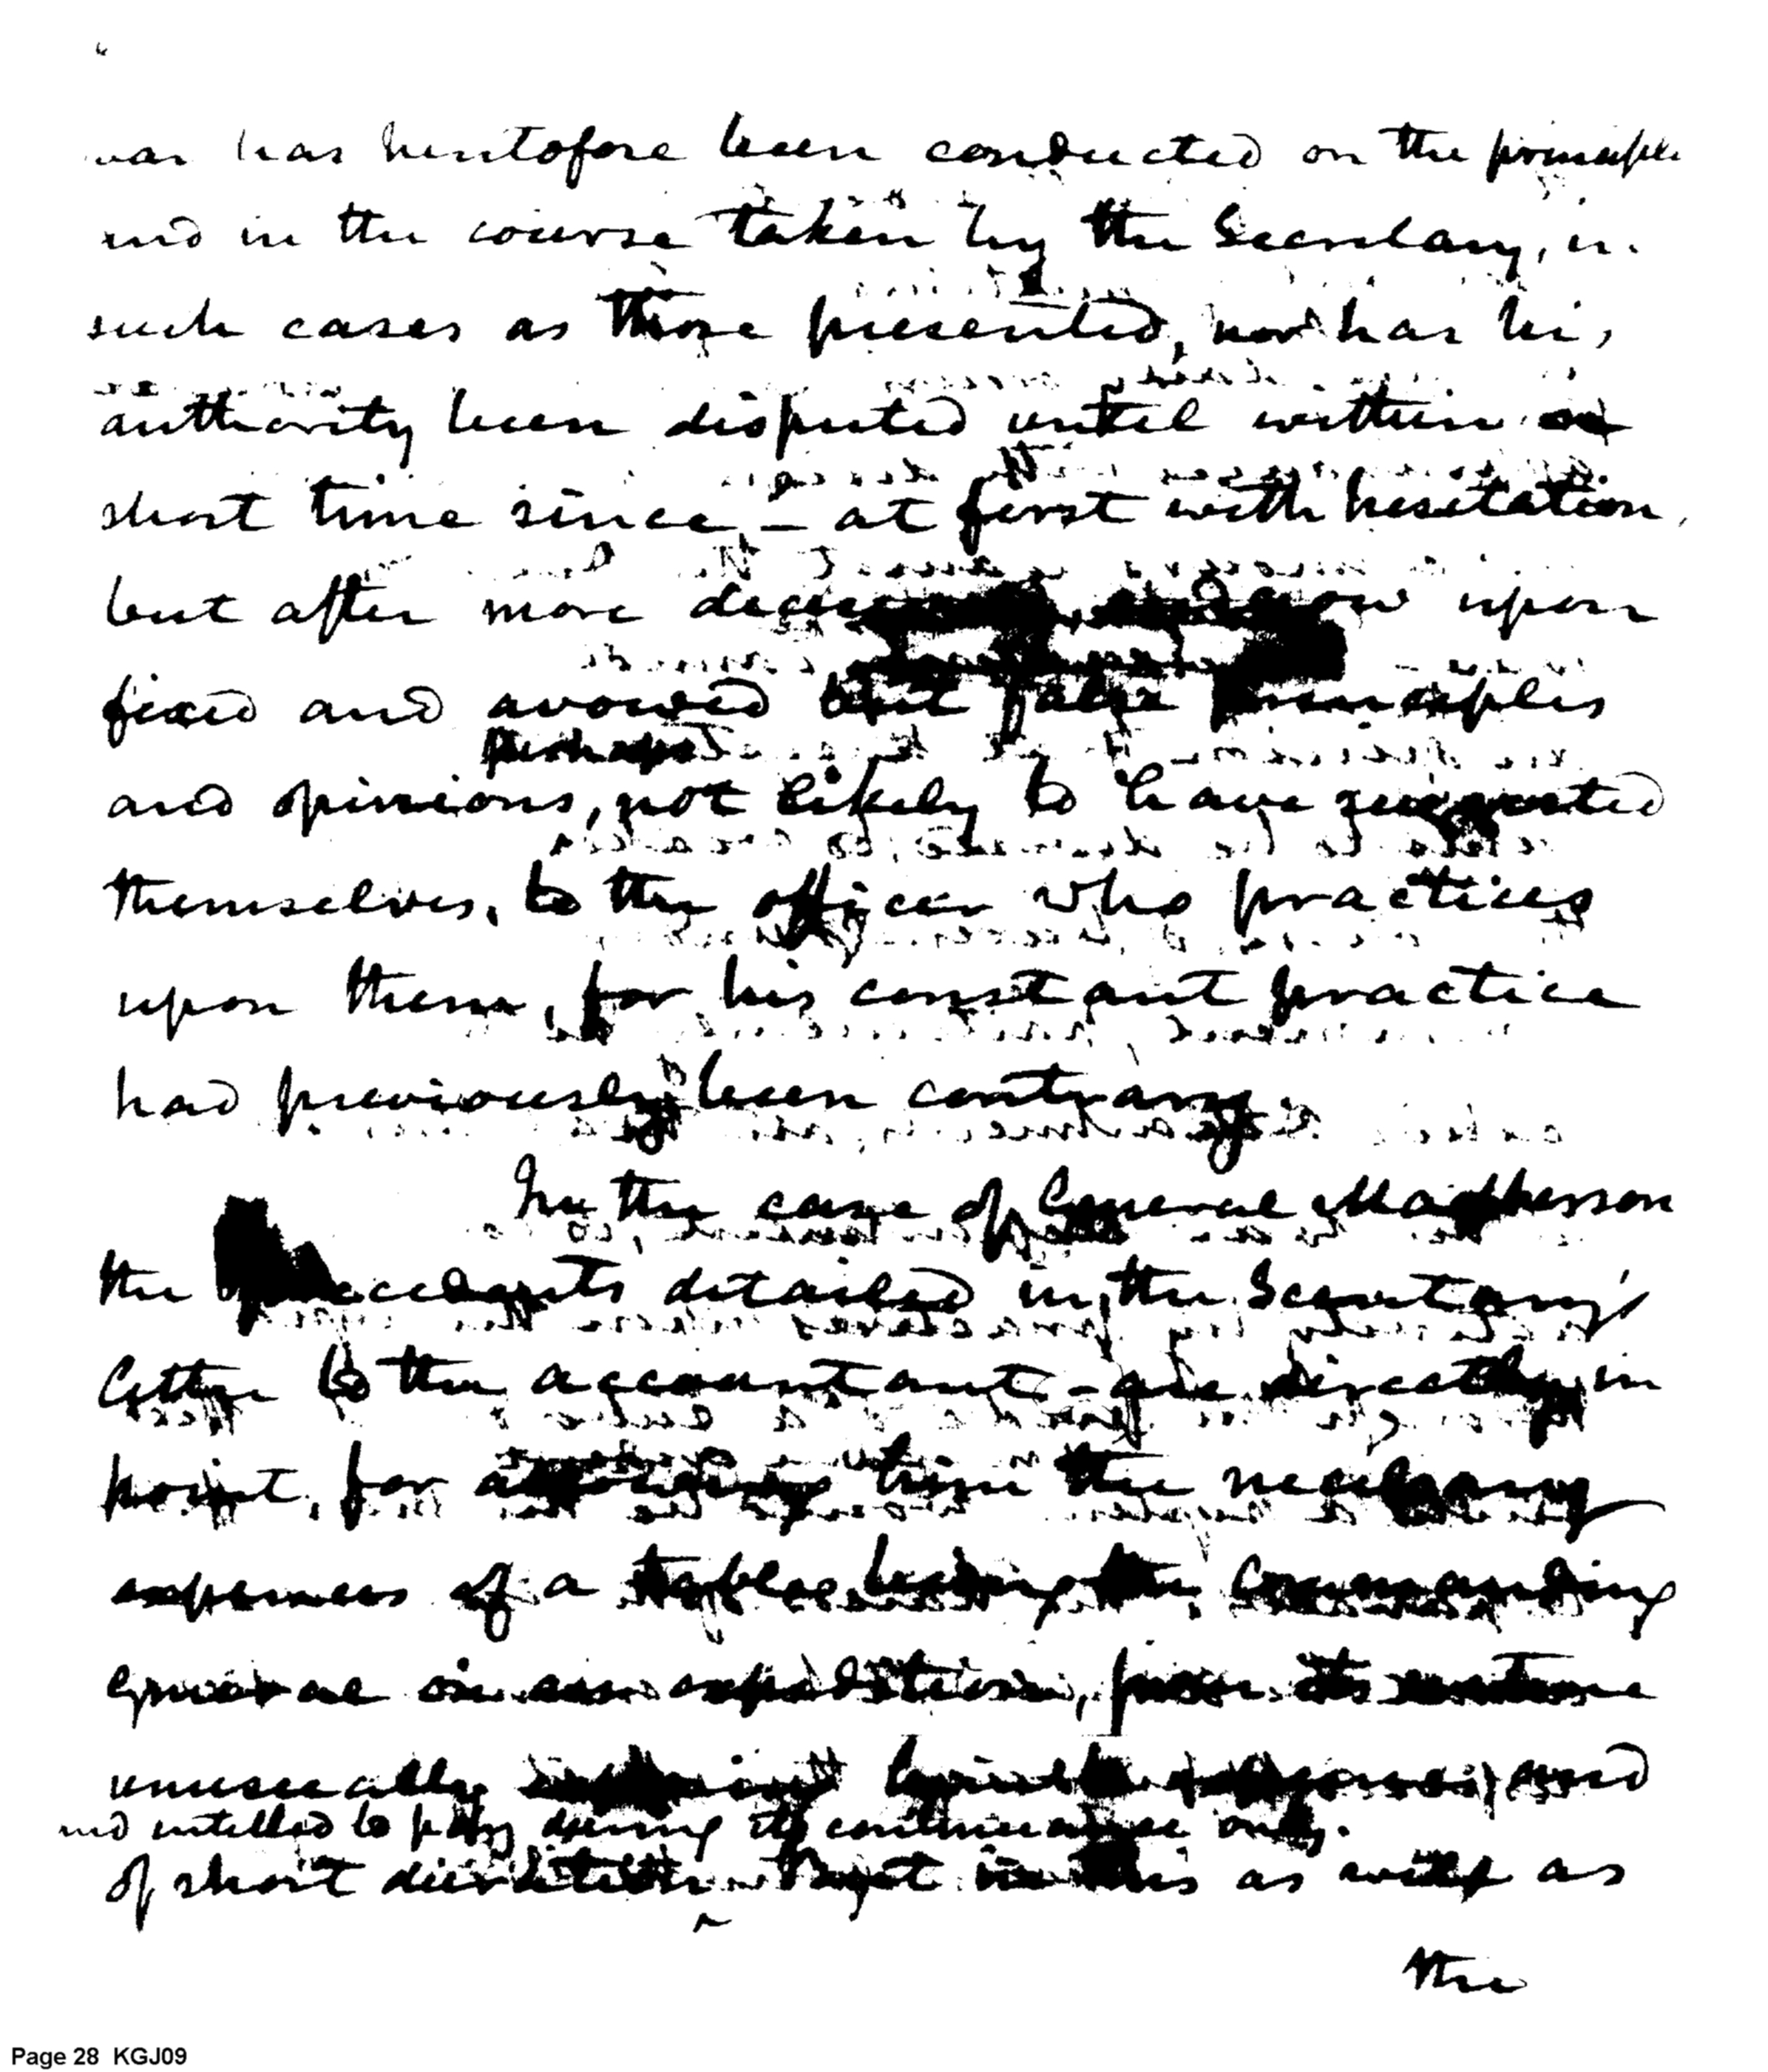 war has heretofore been conducted on the principle
and in the course taken by the Secretary, in
such cases as those presented, nor has his
authority been disputed until within a
short time since, – at first with hesitation,
but after more upon
fixed and avowed but false principles
perhaps
and opinions, not likely to have suggested
themselves, to the officer who practices
upon them, for his constant practice
had previously been contrary.
In the case of General MacPherson
the detailed in the Secretary's
letter to the accountant – are directly in
point, for him the necessary
expenses of a table being the Commanding
general on an expedition, from its nature
unusually and
and intitled to pay during its continuance only.
of short duration. But in this as well as
the
Page 28 KGJ09